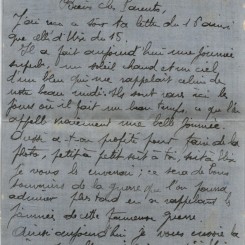 Bien Chers Parents,
J'ai reçu ce soir ta lettre du 1
que celle d'
Il a fait aujourd'hui une journée
superbe, un soleil chaud et un ciel
d'un bleu qui me rappelait celui de
notre beau midi. Ils sont rares ici les
jours où il fait un beau temps, ce que l'on
appelle vraiement une belle journée.
Aussi a-t-on profité pour faire de la
photo, petit à petit
je vous le enverrai; ce sera de bons
souvenirs de la guerre que l'on pourra
admirer plus tard en se rappelant les
journées de cette fameuse guerre
Ainsi aujourd'hui, je vous